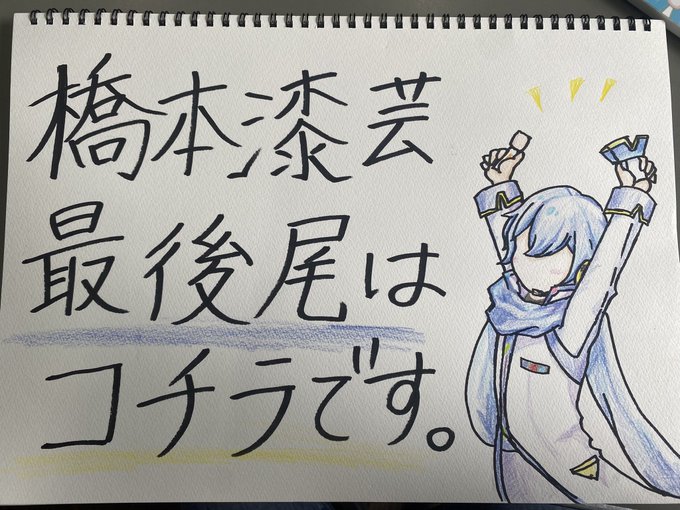 橋本漆芸
最後尾は
コチラです。